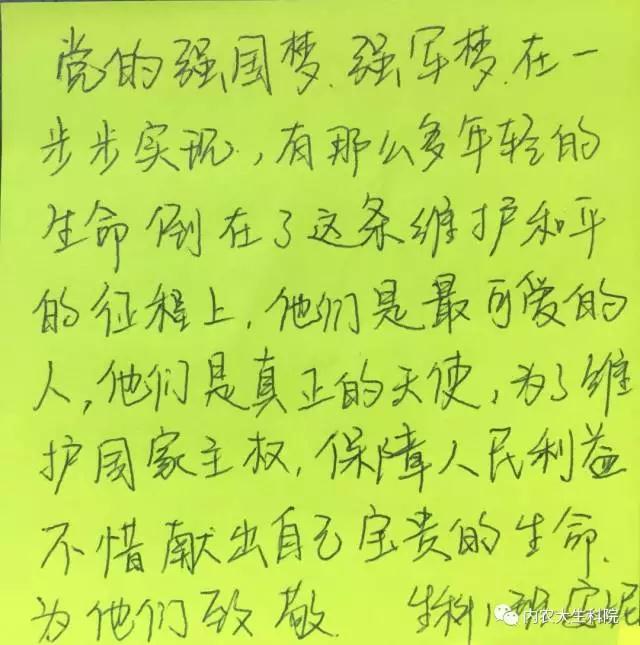 党的强国梦、强军梦在一
步步实现，有那么多年轻的
生命倒在了这条维护和平
的征程上，他们是最可爱的
人，他们是真正的天使，为了维
护国家主权，保障人民利益
不惜献出自己宝贵的生命、
为他们致敬 生科
内农大生科院